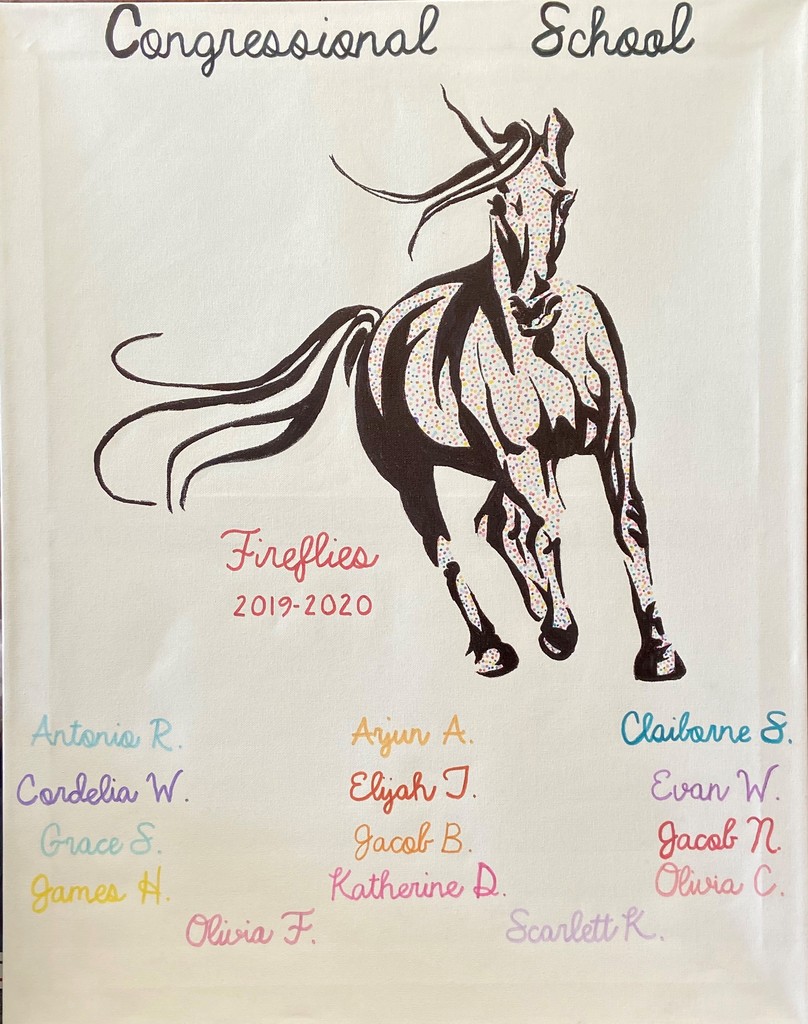 Congressional School
Fireflies
2019-2020
Antonio R. Arjun A. Claiborne S.
Cordelia W. Elijah T. Evan W.
Grace S. Jacob B. Jacob N.
James H. Katherine D. Olivia C.
Olivia F. Scarlett K.